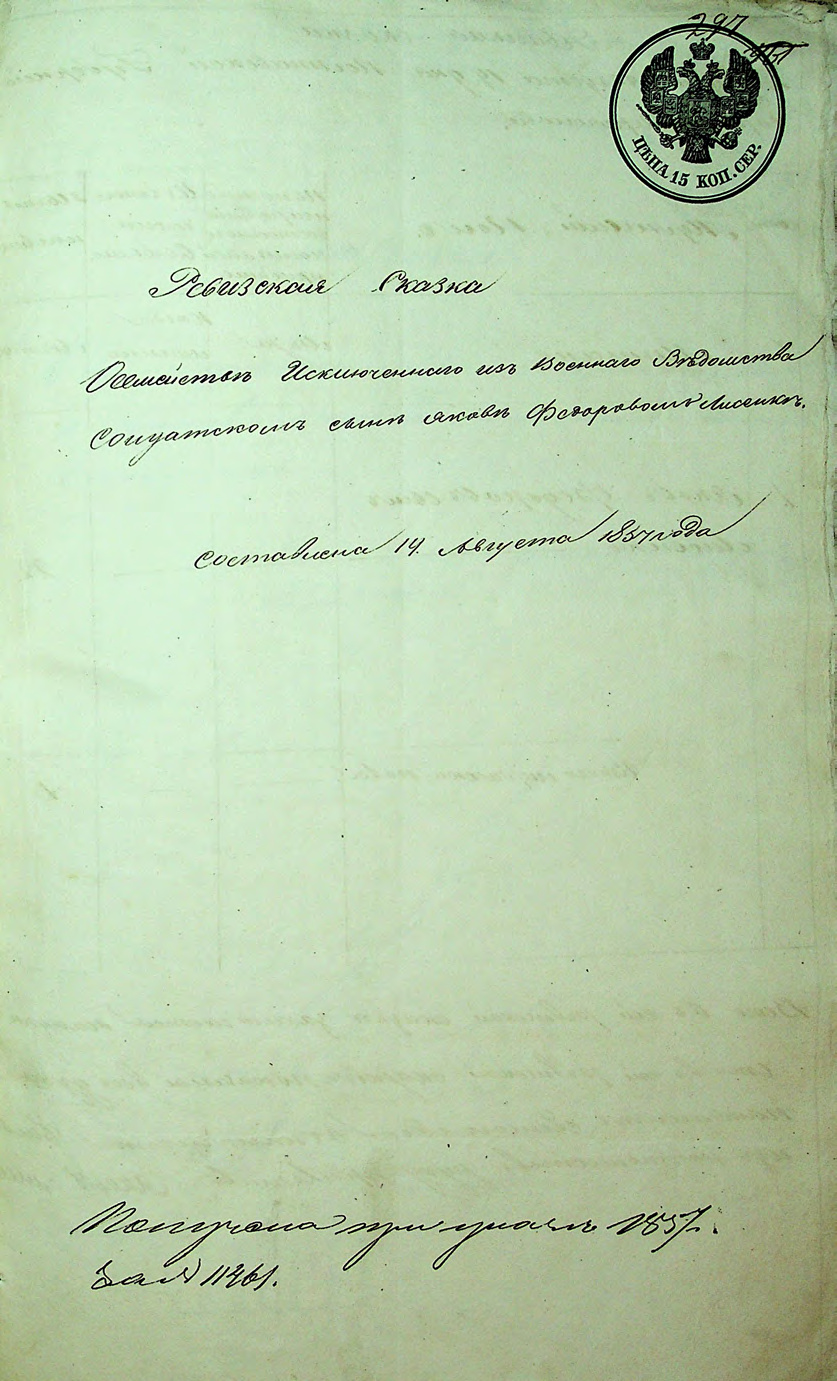 297
ЦѢНА 15 КОП. СЕР.
Ревизская Сказка
О семействѣ Исключеннаго из Военнаго Вѣдомства
Солдатскомъ сынѣ Яковѣ Федоровомъ Лисенкѣ.
Составлена 14. Августа 1857 года
Получена при указѣ 1857 г.
за № 11261.